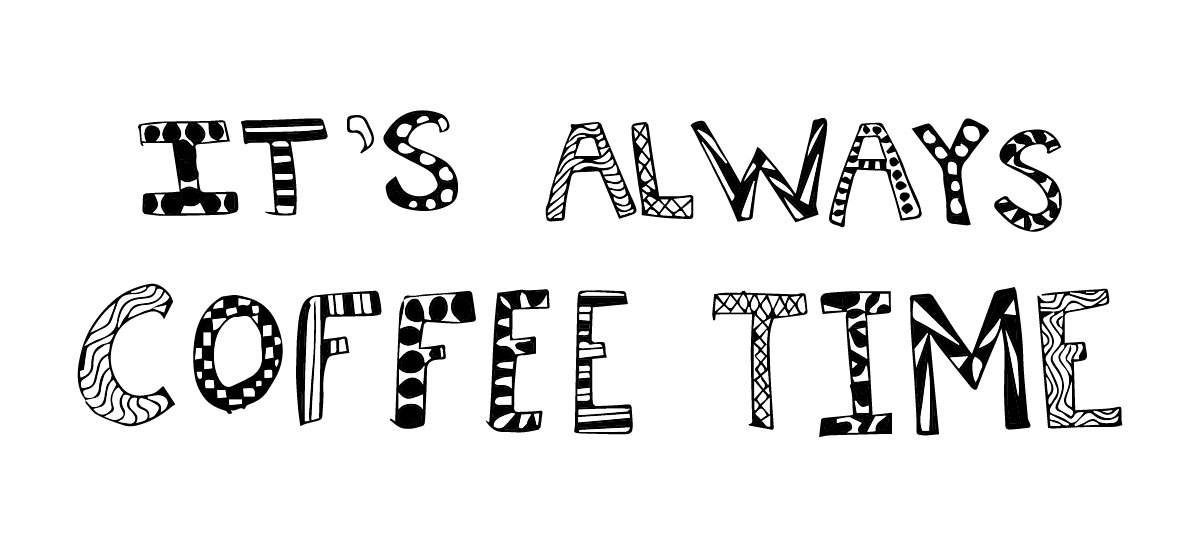 IT'S ALWAYS
COFFEE TIME